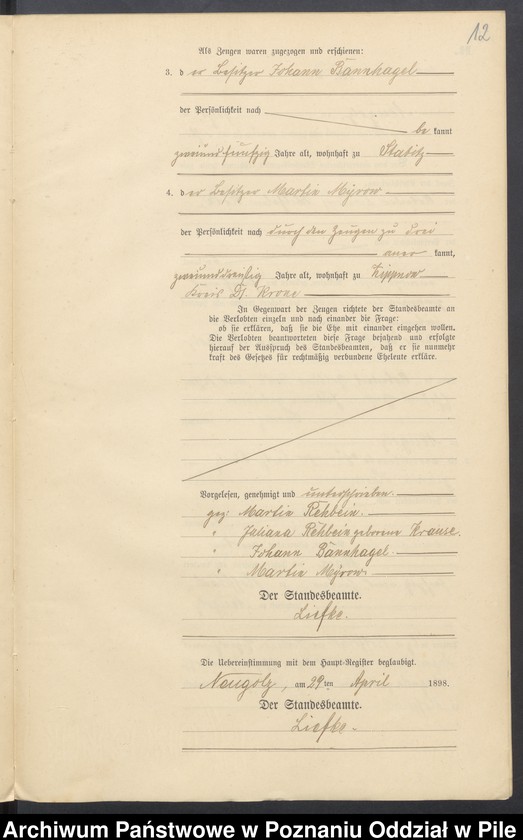 12
Als Zeugen waren zugezogen und erschienen:
3. d er Besitzer Johann Bännhagel
der Persönlichkeit nach
be kannt
zweiundfünfzig Jahre alt, wohnhaft zu Stabitz
4. d er Besitzer Martin Myrow
der Persönlichkeit nach durch den Zeugen zu drei
aner kannt,
zweiunddreißig Jahre alt, wohnhaft zu Zippnow
Kreis Dt. Krone
In Gegenwart der Zeugen richtete der Standesbeamte an
die Verlobten einzeln und nach einander die Frage:
ob sie erklären, daß sie die Ehe mit einander eingehen wollen.
Die Verlobten beantworteten diese Frage bejahend und erfolgte
hierauf der Ausspruch des Standesbeamten, daß er sie nunmehr
kraft des Gesetzes für rechtmäßig verbundene Eheleute erkläre.
Vorgelesen, genehmigt und unterschrieben.
gez. Martin Rehbein.
" Juliana Rehbein geborene Krause.
" Johann Bännhagel.
" Martin Myrow.
Der Standesbeamte.
Liefke.
Die Uebereinstimmung mit dem Haupt-Register beglaubigt.
Neugolz, am 29ten April 1898.
Der Standesbeamte.
Liefke.
Archiwum Państwowe w Poznaniu Oddział w Pile